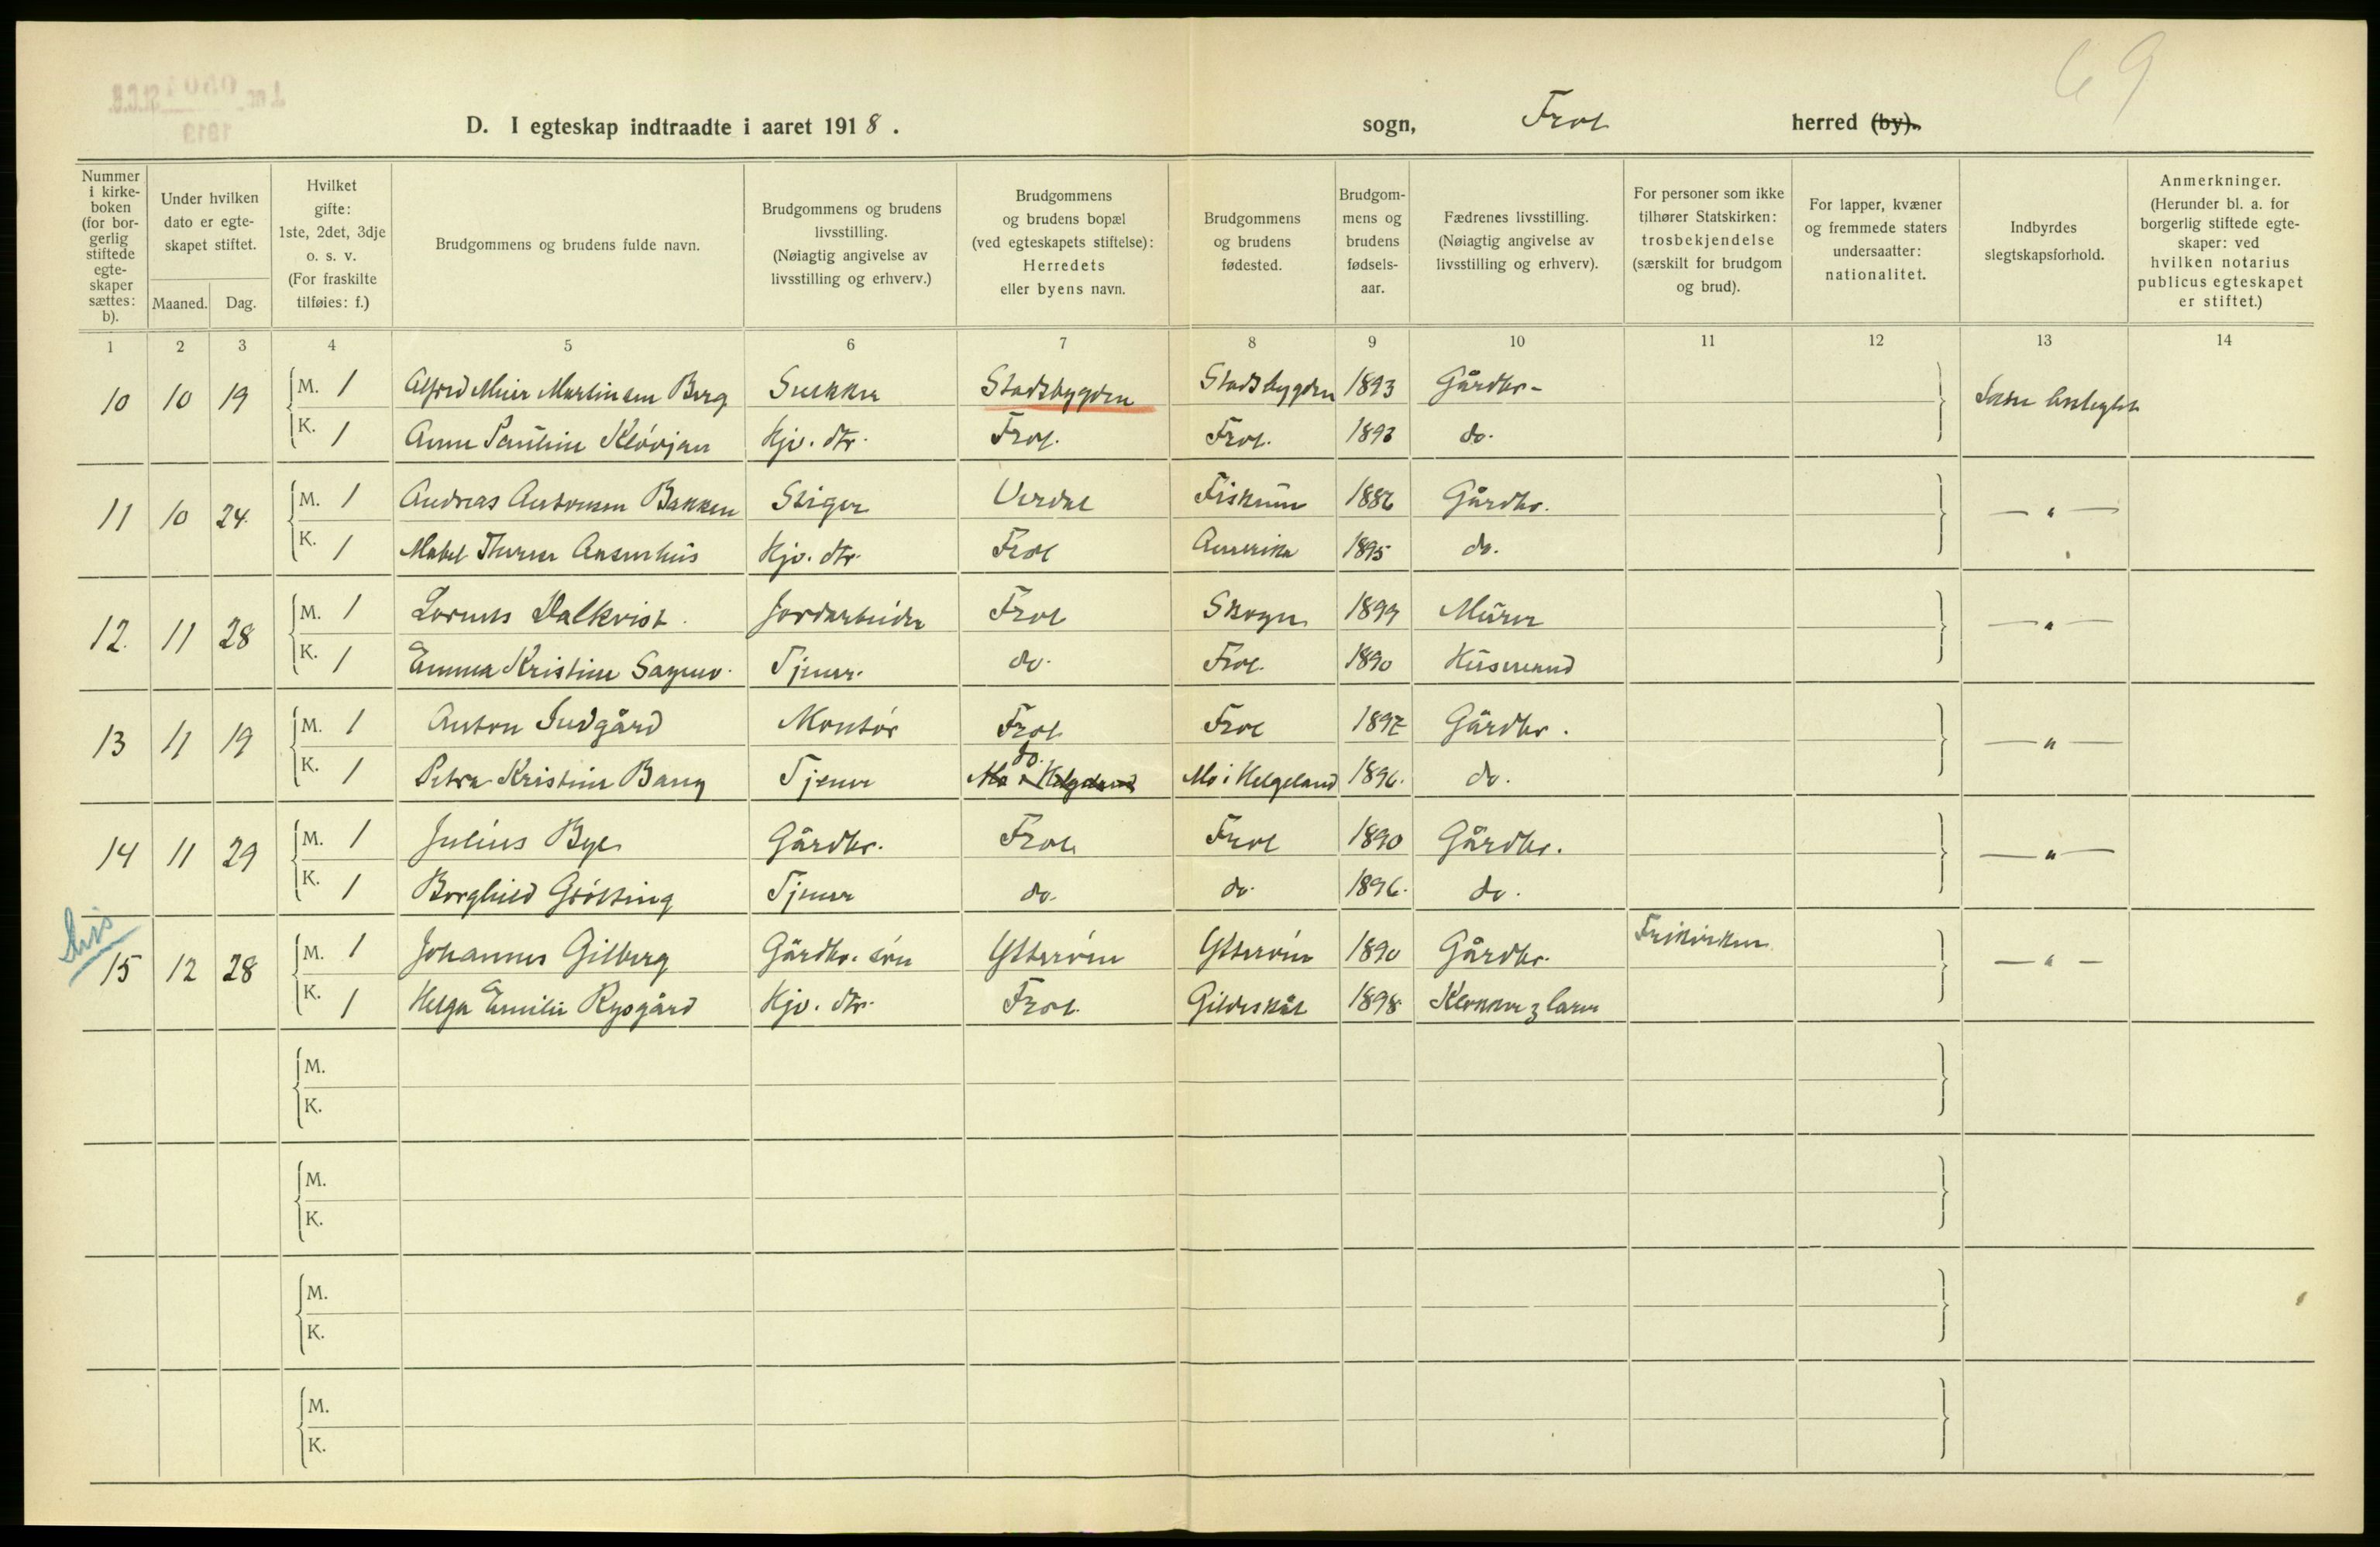 69
D. I egteskap indtraadte i aaret 1918.
sogn, Frol herred (by).
Nummer i kirkeboken (for borgerlig stiftede egteskaper sættes: b).
Under hvilken dato er egteskapet stiftet.
Maaned. Dag.
Hvilket gifte: 1ste, 2det, 3dje o. s. v. (For fraskilte tilføies: f.)
Brudgommens og brudens fulde navn.
Brudgommens og brudens livsstilling. (Nøiagtig angivelse av livsstilling og erhverv.)
Brudgommens og brudens bopæl (ved egteskapets stiftelse): Herredets eller byens navn.
Brudgommens og brudens fødested.
Brudgommens og brudens fødselsaar.
Fædrenes livsstilling. (Nøiagtig angivelse av livsstilling og erhverv).
For personer som ikke tilhører Statskirken: trosbekjendelse (særskilt for brudgom og brud).
For lapper, kvæner og fremmede staters undersaatter: nationalitet.
Indbyrdes slegtskapsforhold.
Anmerkninger. (Herunder bl. a. for borgerlig stiftede egteskaper: ved hvilken notarius publicus egteskapet er stiftet.)
1 2 3 4 5 6 7 8 9 10 11 12 13 14
10 10 19 M. 1 Alfred Meier Martinsen Berg Snekker Stadsbygden Stadsbygden 1893 Gårdbr.
K. 1 Anne Pauline Kløvjan Hjv. dtr. Frol. Frol. 1893 do.
11 10 24. M. 1 Andreas Antonsen Bakken Stiger Verdal Fiskum 1886 Gårdbr. — " —
K. 1 Mabel Aksnshus Hjv. dtr. Frol Amerika 1895 do.
12. 11 28 M. 1 Lorents Dalkvist. Jordarbeider Frol Skogn 1899 Murer — " —
K. 1 Emma Kristine Tjener. do. Frol. 1890 Husmand
13 11 19 M. 1 Anton Indgård Montør Frol Frol 1892 Gårdbr. — " —
K. 1 Petra Kristine Bang Tjener do. Mo i Helgeland Mo i Helgeland 1896. do.
14 11 29 M. 1 Julius Bye Gårdbr. Frol Frol 1890 Gårdbr. — " —
K. 1 Borghild Grötting Tjener do. do. 1896. do.
15 12 28 M. 1 Johannes Gilberg Gårdbr. søn Ytterøen Ytterøen 1890 Gårdbr. Frikirken — " —
K. 1 Helga Emilie Rysgård Hjv. dtr. Frol. Gildeskål 1898 Klokker & lærer
M.
K.
M.
K.
M.
K.
M.
K.